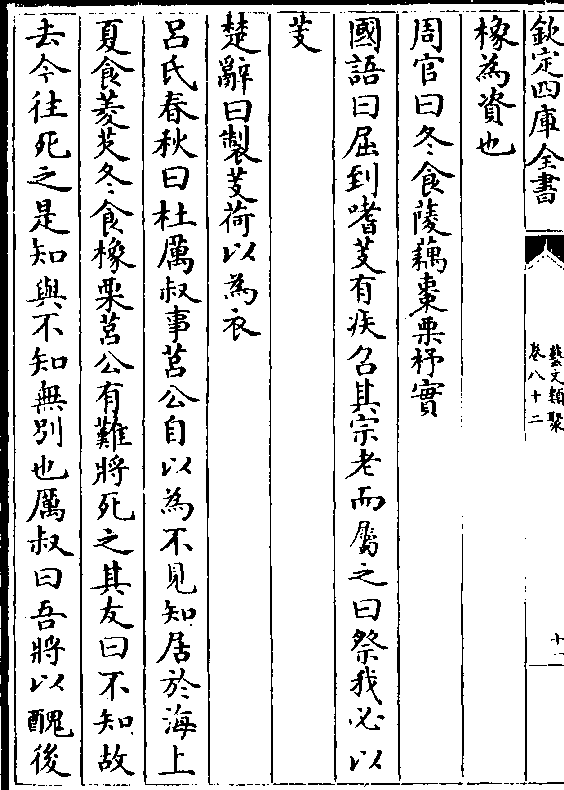 欽定四庫全書
藝文類聚
卷八十二
十一
橡為資也
周官曰冬食蔆藕棗栗杼實
國語曰屈到嗜芰有疾召其宗老而屬之曰祭我必以
芰
楚辭曰製芰荷以為衣
呂氏春秋曰杜厲叔事莒公自以為不見知居於海上
夏食菱芡冬食橡栗莒公有難將死之其友曰不知故
去今往死之是知與不知無別也厲叔曰吾將以醜後